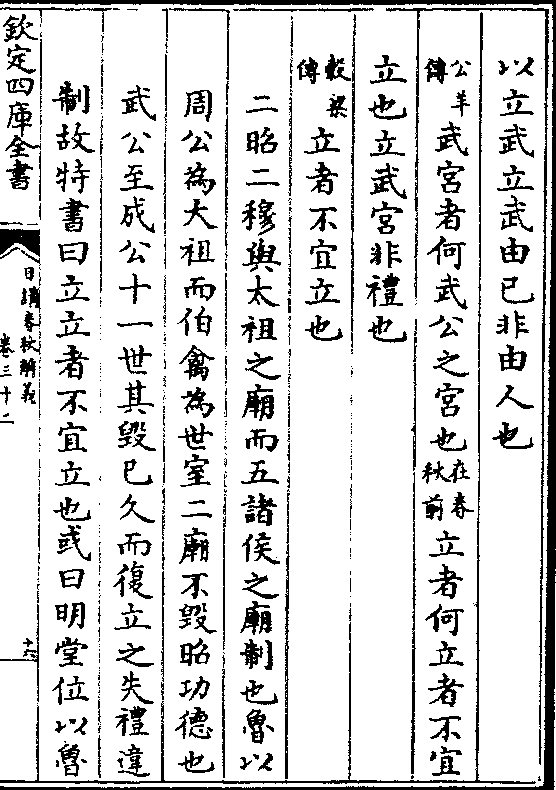 以立武立武由已非由人也
公羊傳武宮者何武公之宮也在春秋前立者何立者不宜
立也立武宮非禮也
穀梁傳立者不宜立也
二昭二穆與太祖之廟而五諸侯之廟制也魯以
周公為大祖而伯禽為世室二廟不毀昭功德也
武公至成公十一世其毀已久而復立之失禮違
制故特書曰立立者不宜立也或曰明堂位以魯
欽定四庫全書
日講春秋解義
卷三十二
十六